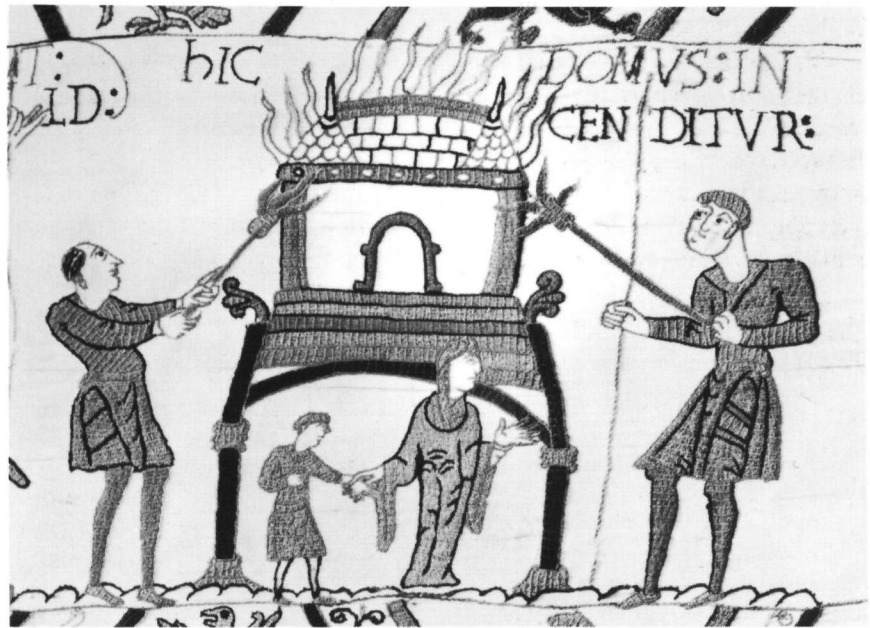 I:
LD:
hIC DOMVS:IN
CEN DITVR: